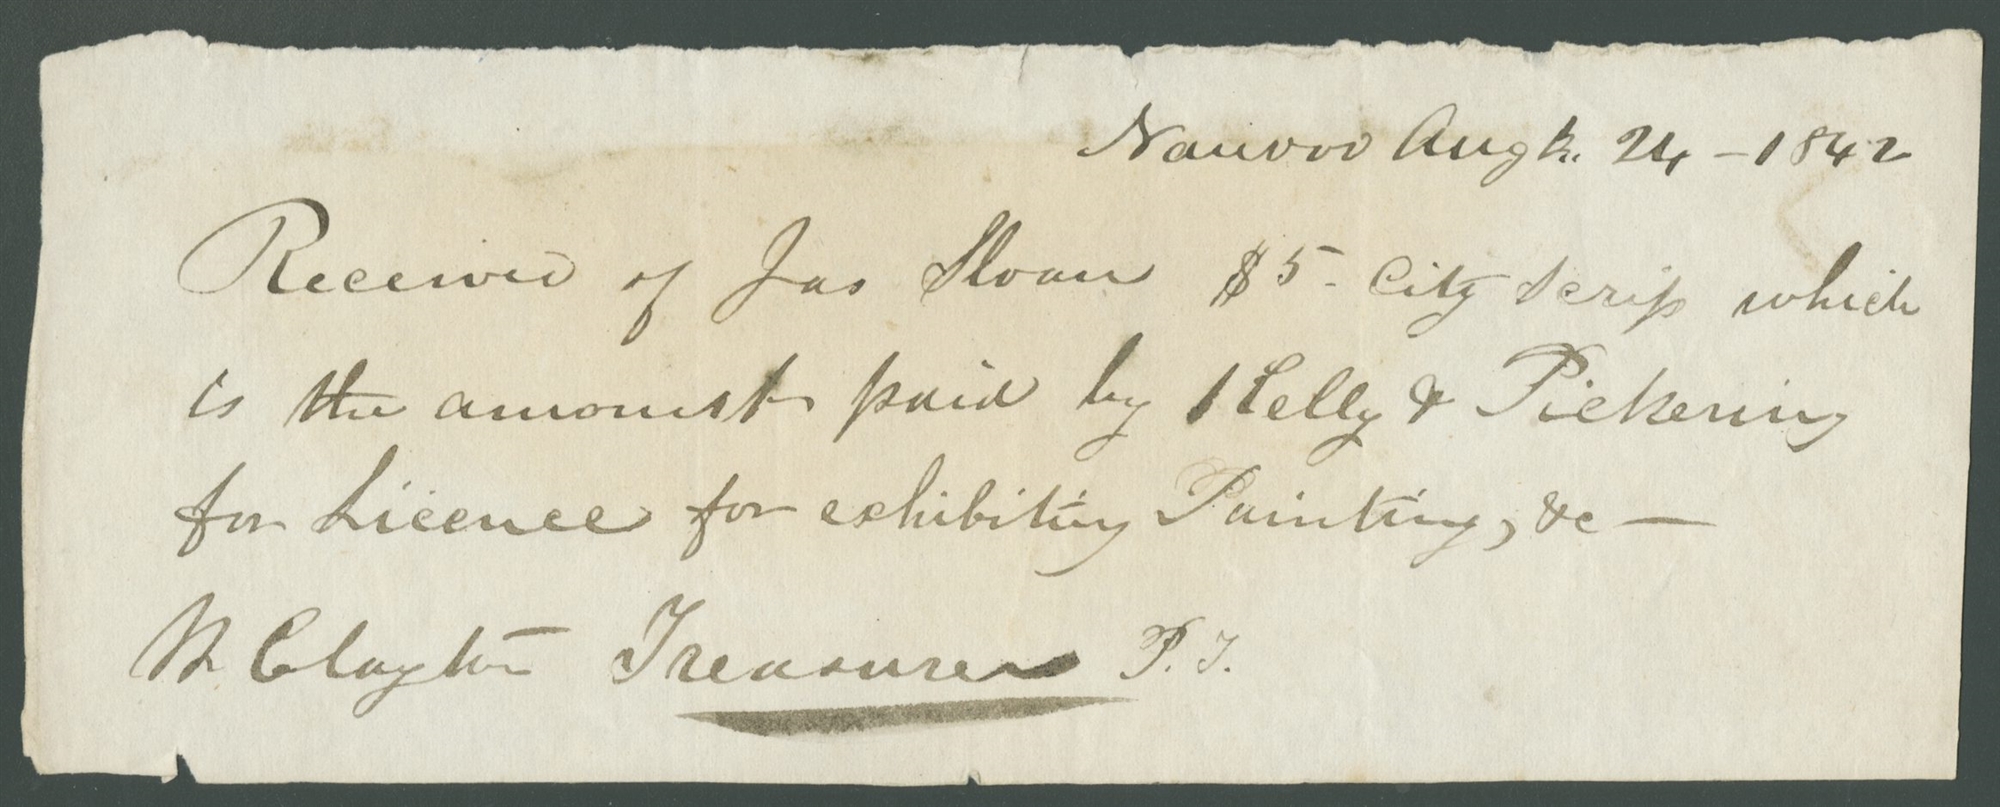 Nauvoo Augt. 24 - 1842
Received of Jas Sloan $5 - City Scrip which
is the amount paid by Kelly & Pickering
for Licence for exhibiting Painting, &c —
W Clayton Treasurer P.T.